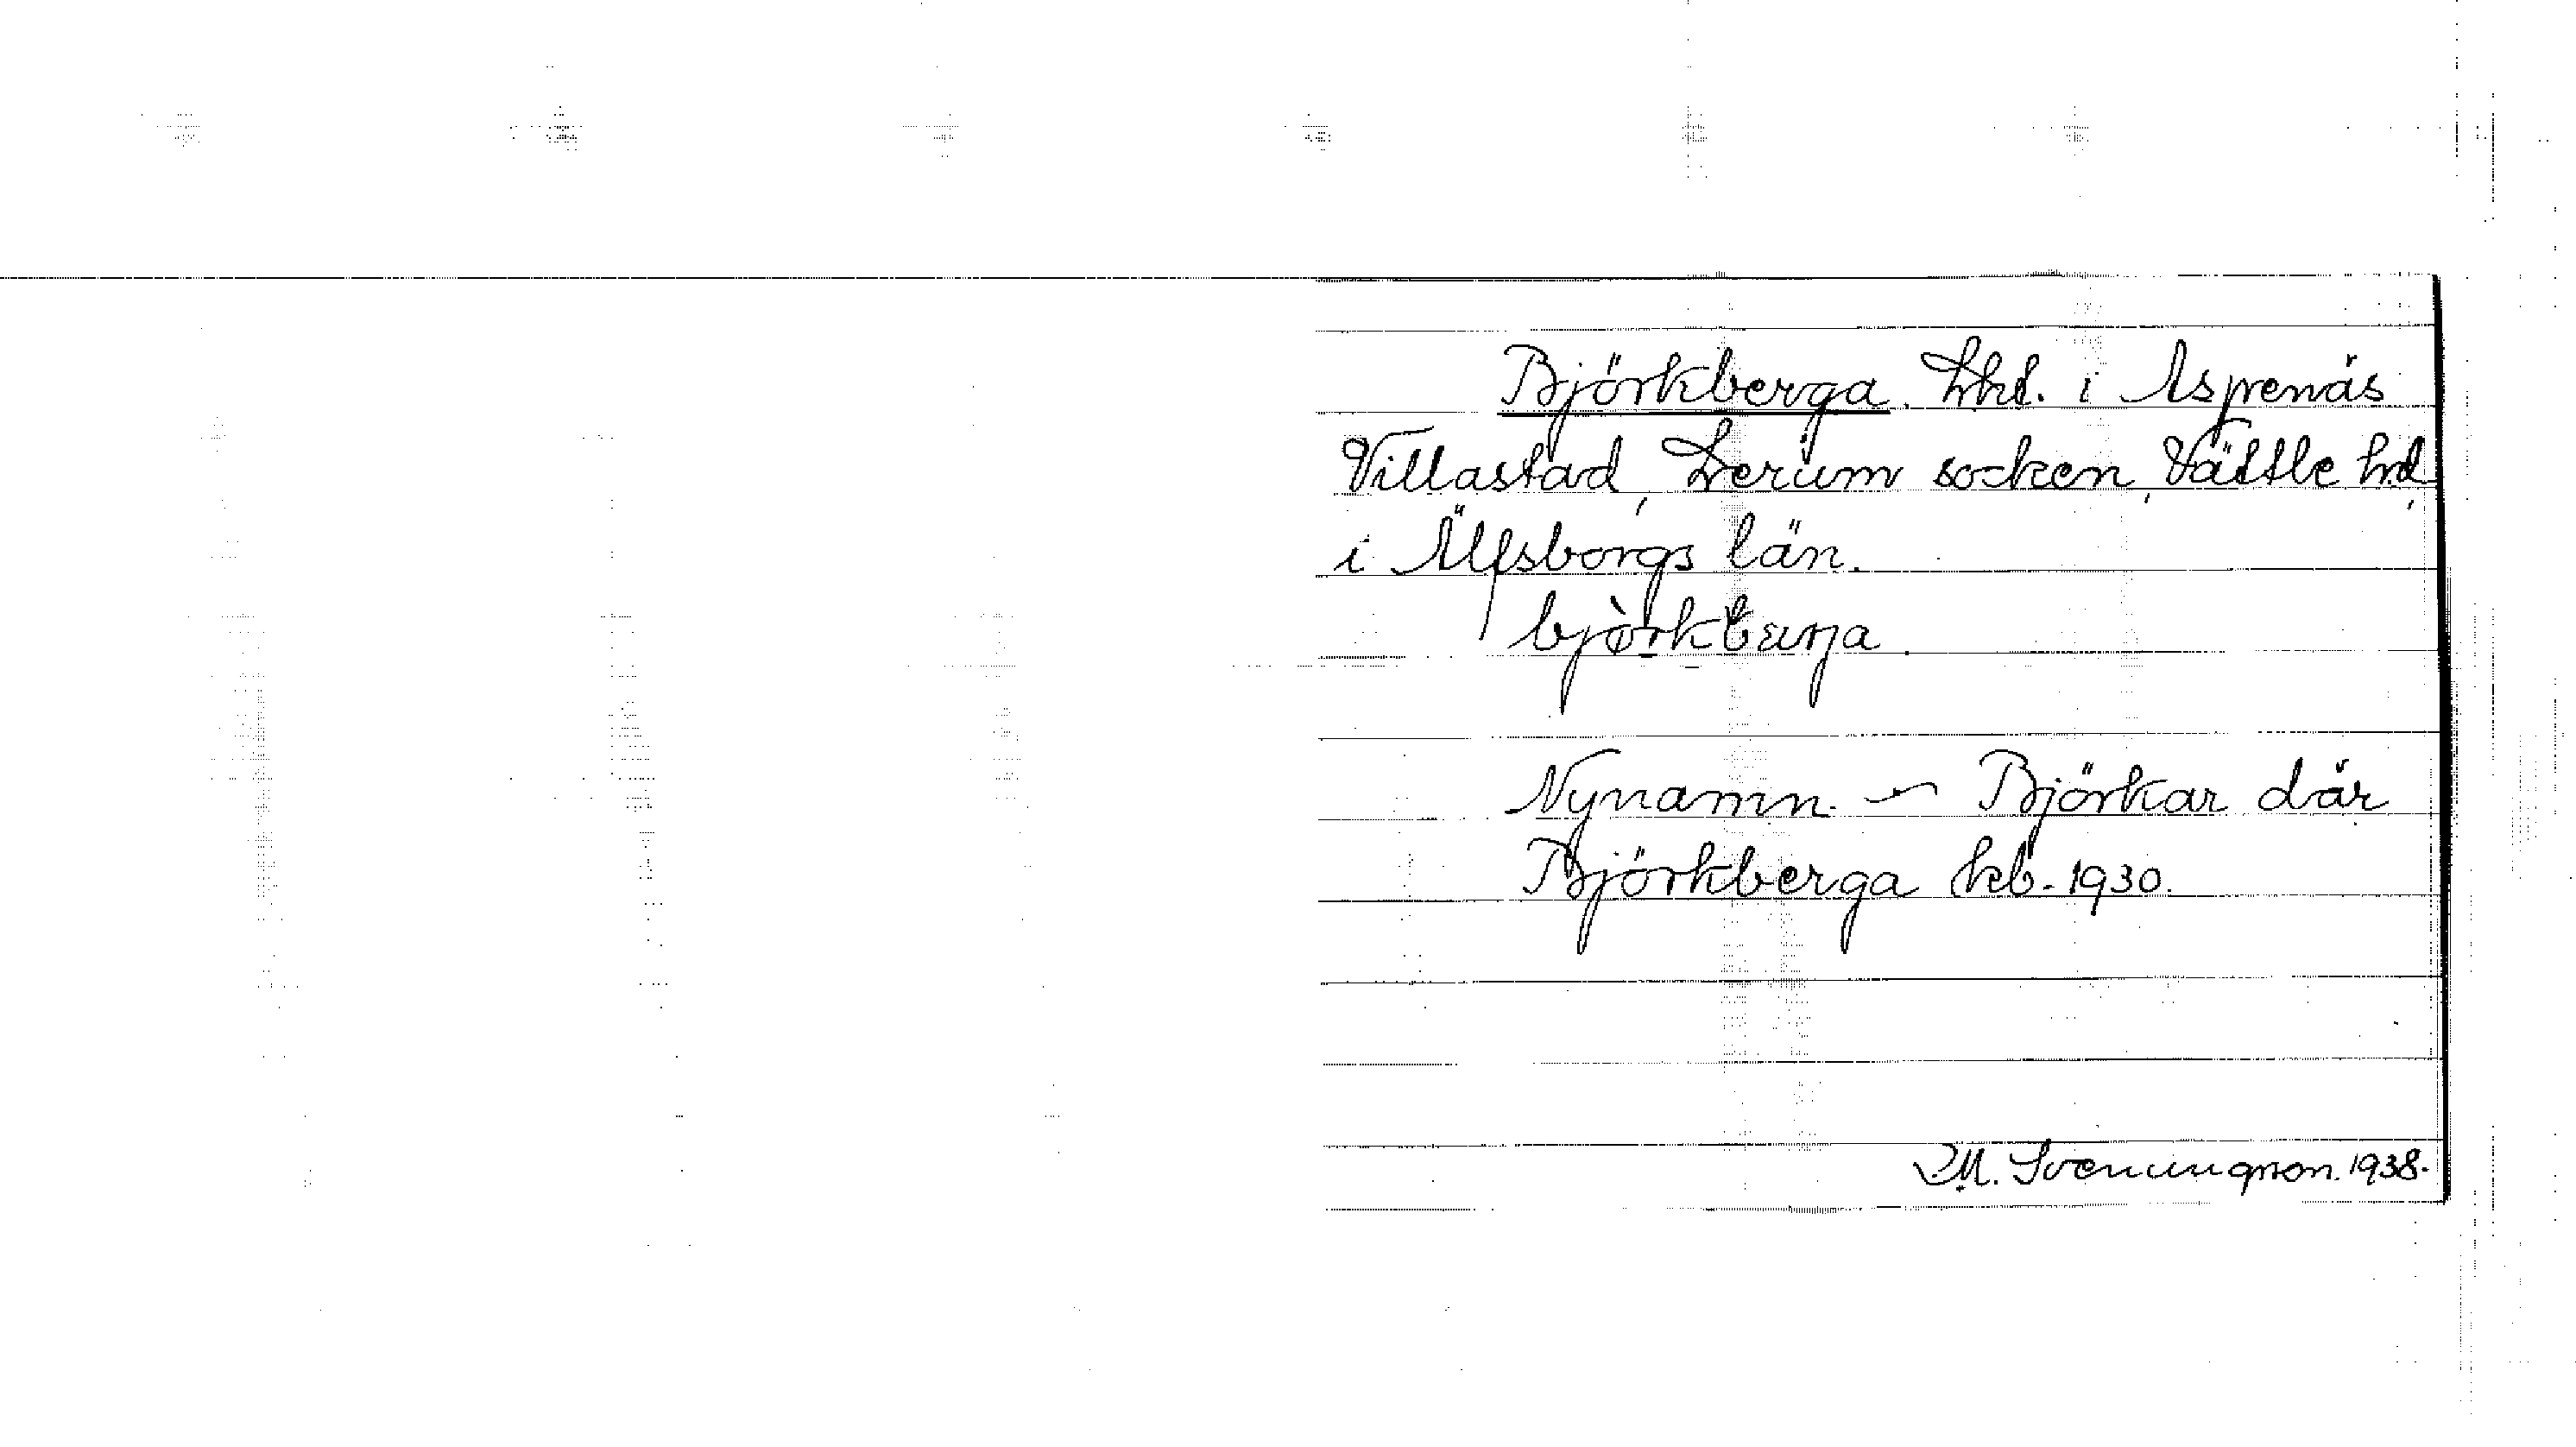 Björkberga. Lht. i Aspenäs
Villastad, Lerum socken, Vättle hd,
i Älfsborgs län.
björkbærja.
Nynamn. – Björkar där
Björkberga kb. 1930.
M. Svenungson. 1938.